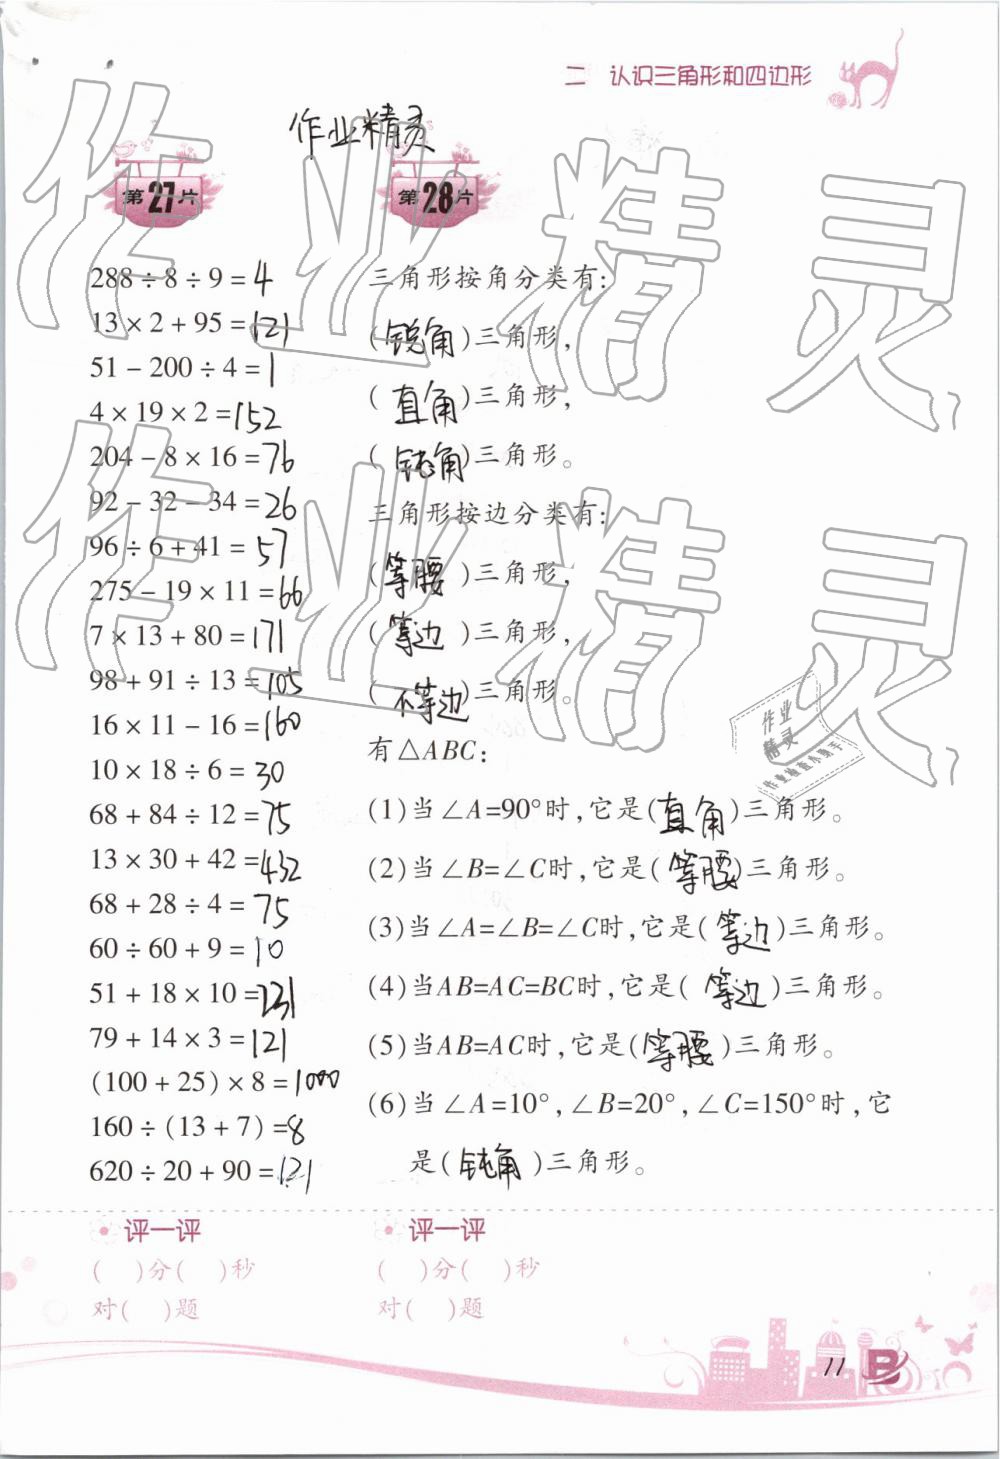 二 认识三角形和四边形
作业精灵
第27片
288÷8÷9=4
13×2+95=121
51-200÷4=1
4×19×2=152
204-8×16=76
92-32-34=26
96÷6+41=57
275-19×11=66
7×13+80=171
98+91÷13=105
16×11-16=160
10×18÷6=30
68+84÷12=75
13×30+42=432
68+28÷4=75
60÷60+9=10
51+18×10=231
79+14×3=121
(100+25)×8=1000
160÷(13+7)=8
620÷20+90=121
评一评
( )分( )秒
对( )题
第28片
三角形按角分类有:
(锐角)三角形,
(直角)三角形,
(钝角)三角形。
三角形按边分类有:
(等腰)三角形,
(等边)三角形,
(不等边)三角形。
有△ABC:
(1)当∠A=90°时,它是(直角)三角形。
(2)当∠B=∠C时,它是(等腰)三角形。
(3)当∠A=∠B=∠C时,它是(等边)三角形。
(4)当AB=AC=BC时,它是(等边)三角形。
(5)当AB=AC时,它是(等腰)三角形。
(6)当∠A=10°,∠B=20°,∠C=150°时,它
是(钝角)三角形。
评一评
( )分( )秒
对( )题
作业精灵
作业精灵
作业
精灵
作业检查小助手
11
B